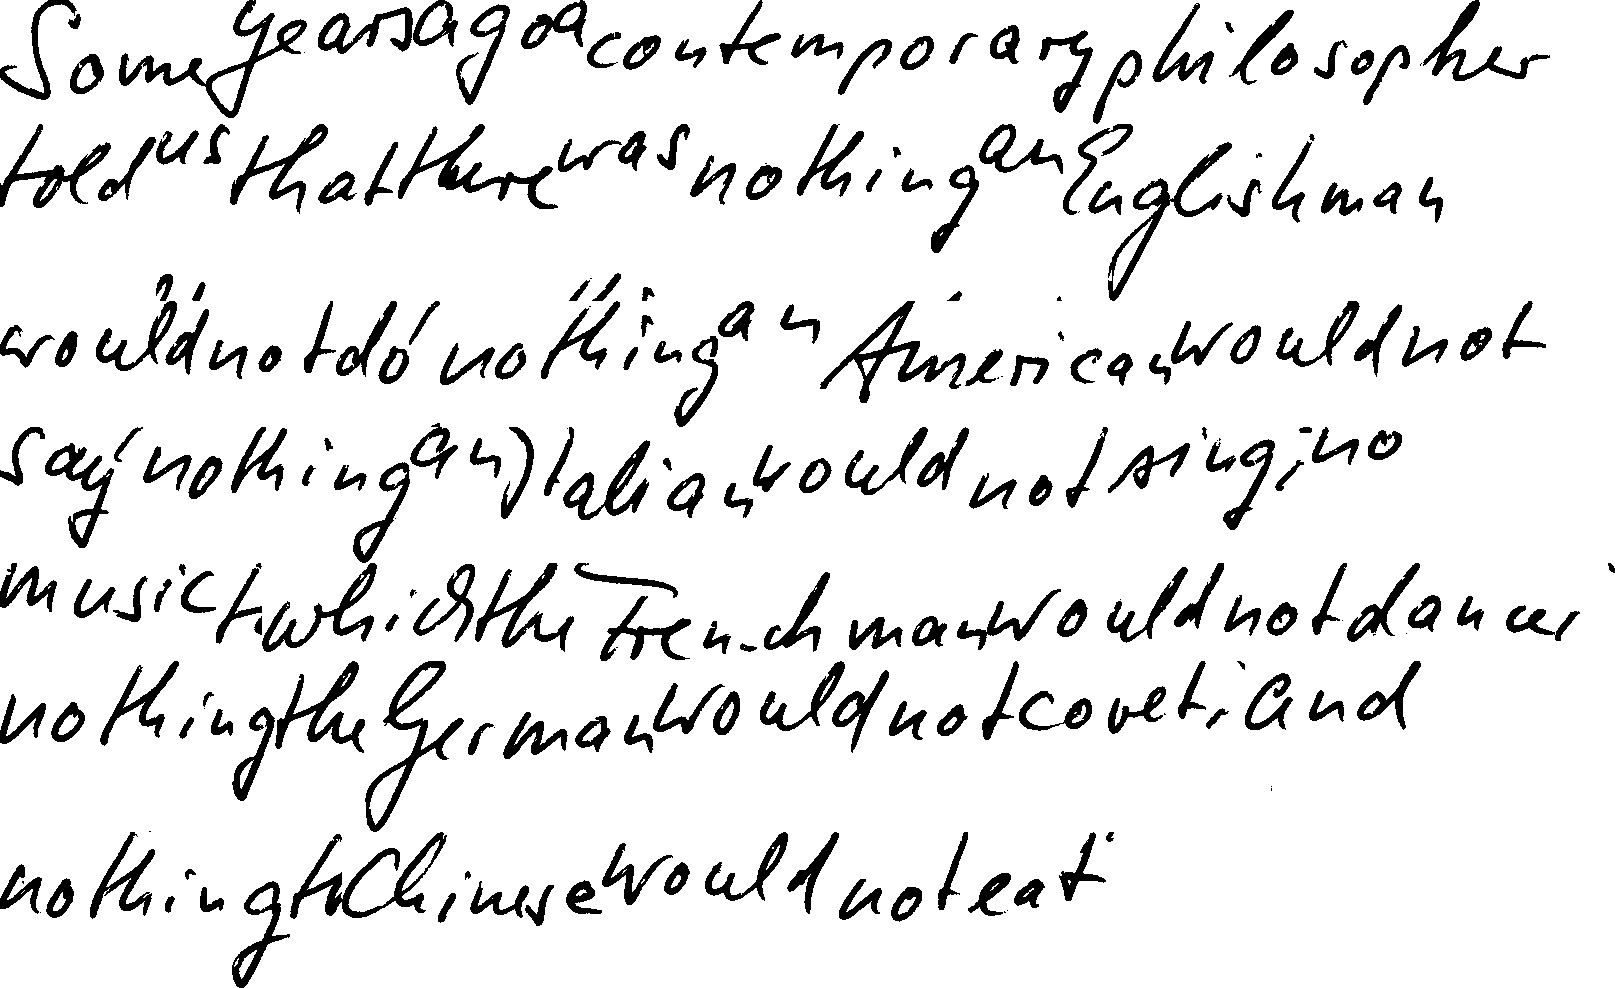 Some years ago a contemporary philosopher
told us that there was nothing an Englishman
would not do nothing an American would not
say nothing an Italian would not sing; no
music to which the Frenchman would not dance;
nothing the German would not covet; and
nothing the Chinese would not eat.